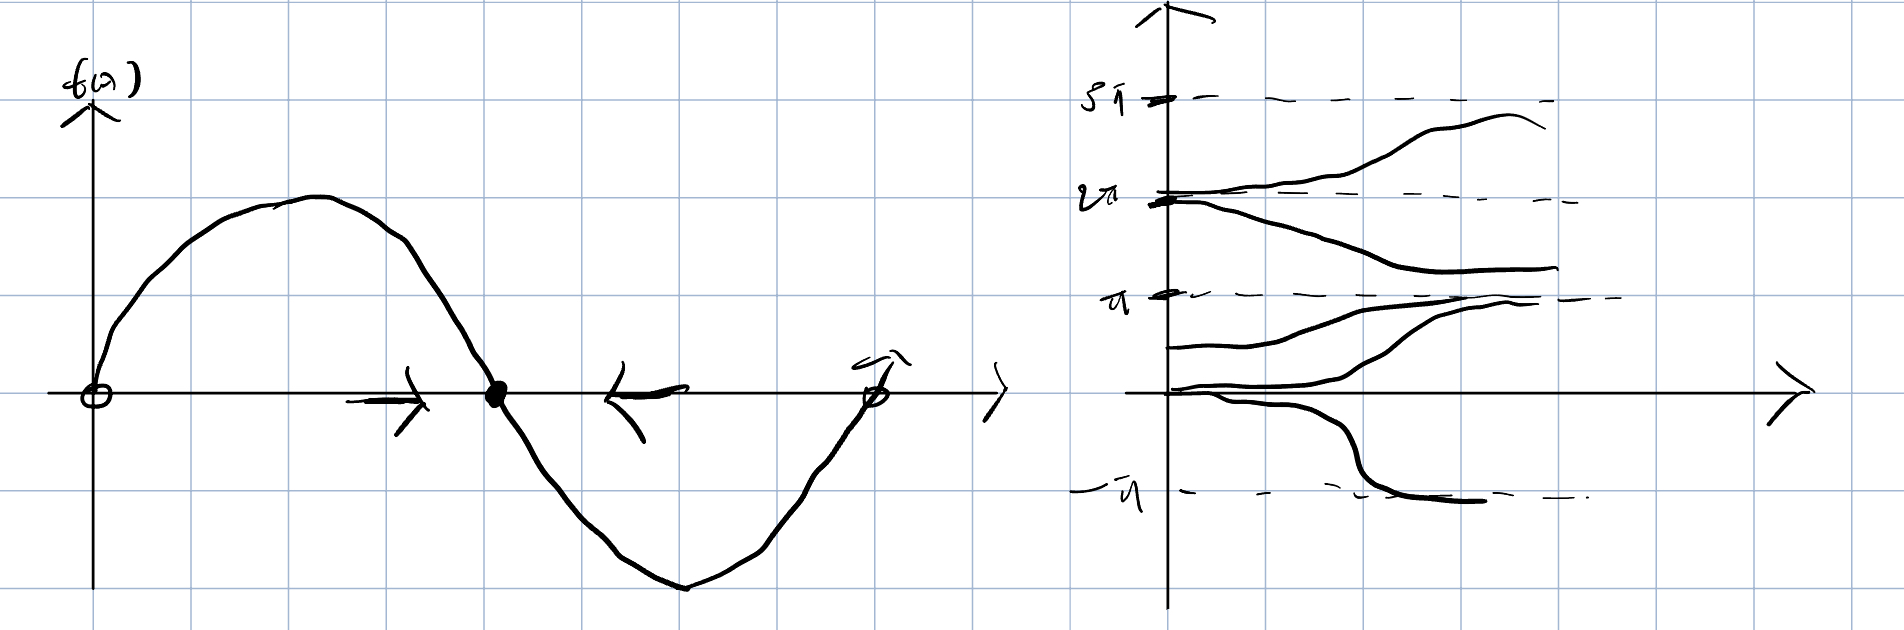 f(x)
3π
2π
π
-π